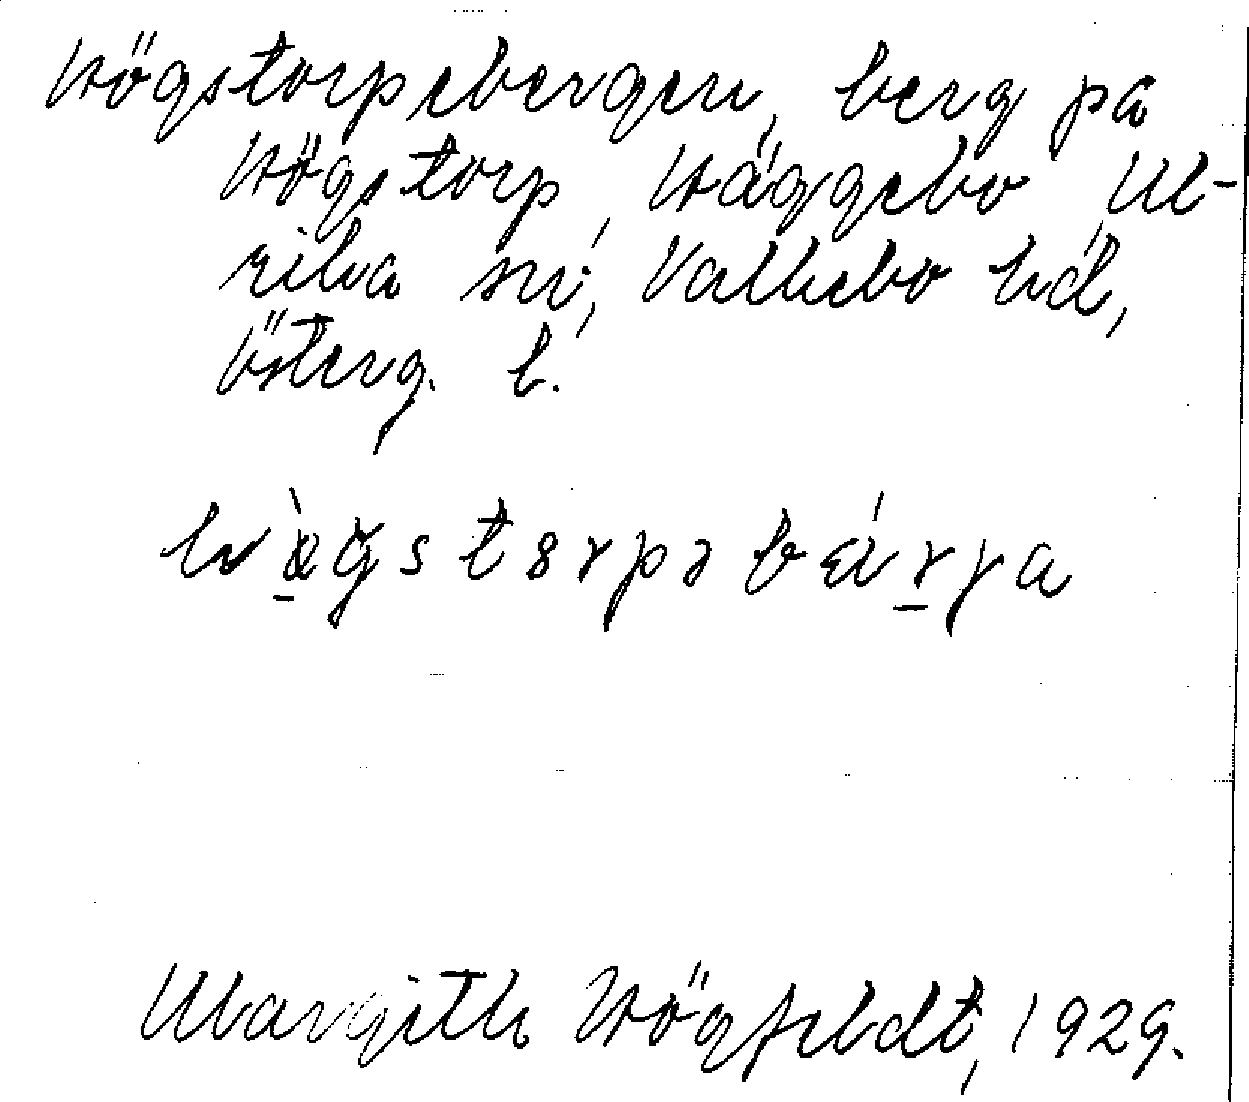 Högstorpebergen, berg på
Högstorp, Häggebo, Ul-
rika sn, Valkebo hd,
Österg. l.
Margith Högfeldt, 1929.